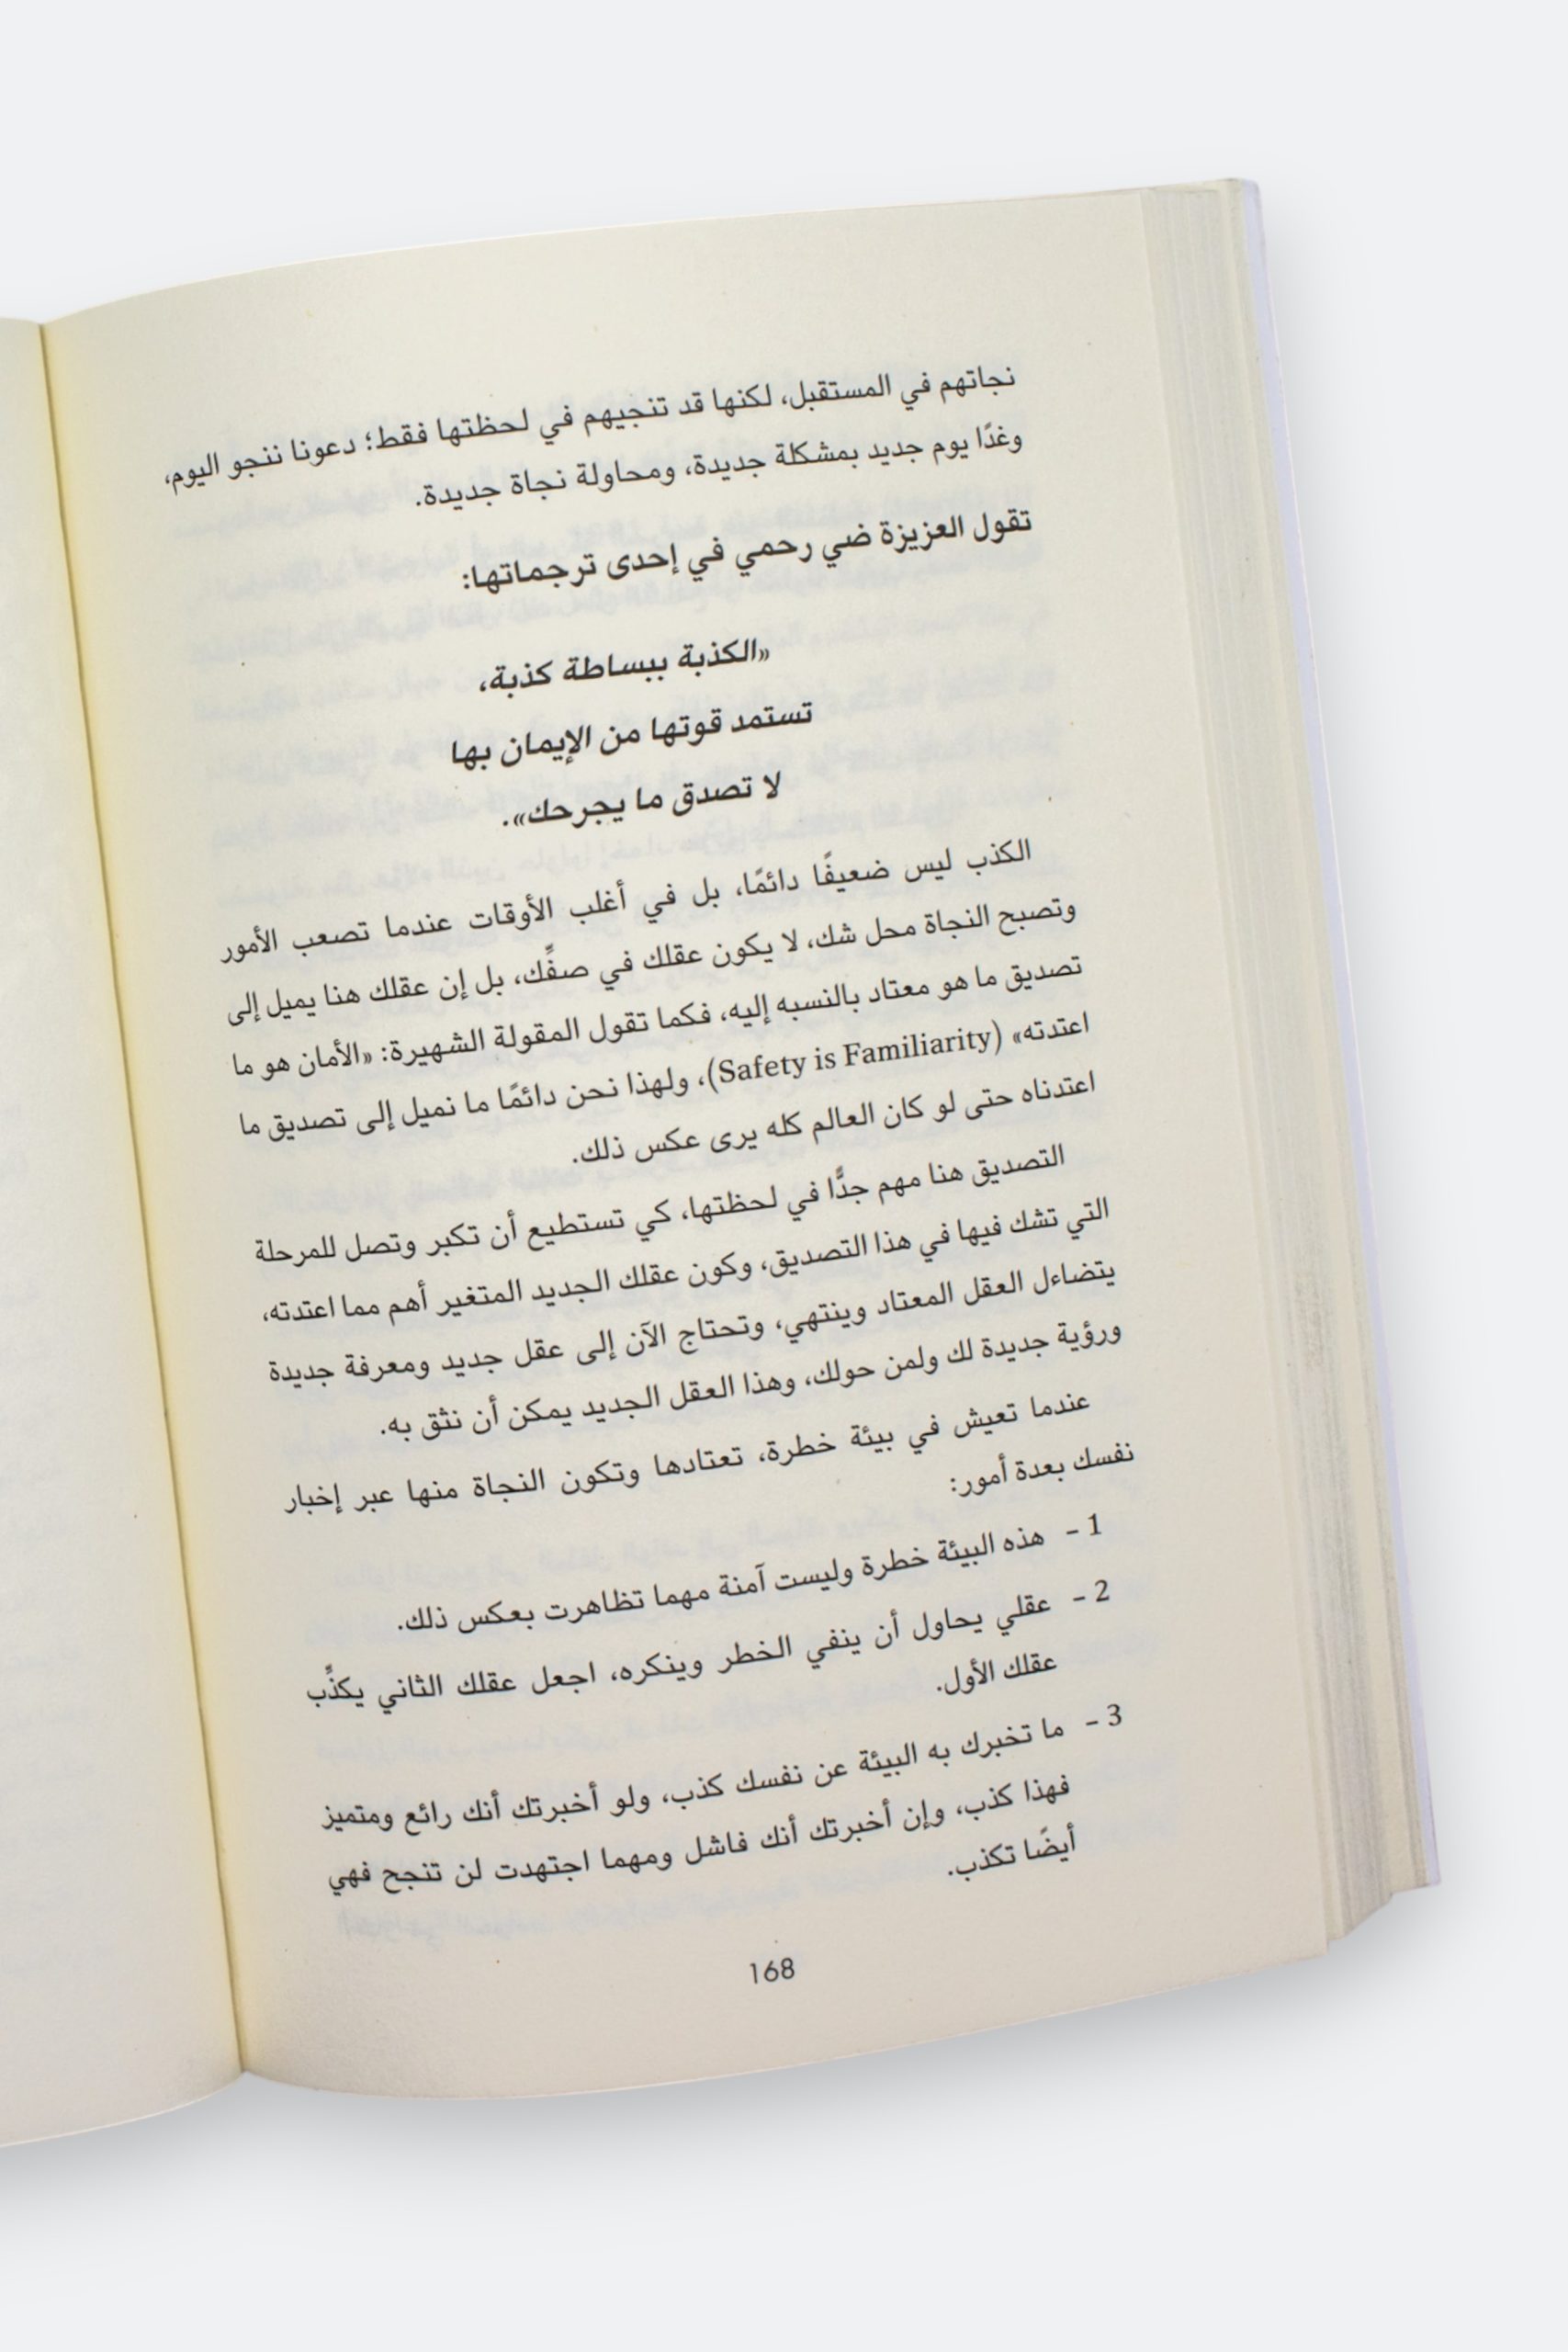 نجاتهم في المستقبل، لكنها قد تنجيهم في لحظتها فقط؛ دعونا ننجو اليوم،
وغدًا يوم جديد بمشكلة جديدة، ومحاولة نجاة جديدة.
تقول العزيزة ضي رحمي في إحدى ترجماتها:
«الكذبة ببساطة كذبة،
تستمد قوتها من الإيمان بها
لا تصدق ما يجرحك».
الكذب ليس ضعيفًا دائمًا، بل في أغلب الأوقات عندما تصعب الأمور
وتصبح النجاة محل شك، لا يكون عقلك في صفِّك، بل إن عقلك هنا يميل إلى
تصديق ما هو معتاد بالنسبه إليه، فكما تقول المقولة الشهيرة: «الأمان هو ما
اعتدته» (Safety is Familiarity)، ولهذا نحن دائمًا ما نميل إلى تصديق ما
اعتدناه حتى لو كان العالم كله يرى عكس ذلك.
التصديق هنا مهم جدًّا في لحظتها، كي تستطيع أن تكبر وتصل للمرحلة
التي تشك فيها في هذا التصديق، وكون عقلك الجديد المتغير أهم مما اعتدته،
يتضاءل العقل المعتاد وينتهي، وتحتاج الآن إلى عقل جديد ومعرفة جديدة
ورؤية جديدة لك ولمن حولك، وهذا العقل الجديد يمكن أن نثق به.
عندما تعيش في بيئة خطرة، تعتادها وتكون النجاة منها عبر إخبار
نفسك بعدة أمور:
1 - هذه البيئة خطرة وليست آمنة مهما تظاهرت بعكس ذلك.
2 - عقلي يحاول أن ينفي الخطر وينكره، اجعل عقلك الثاني يكذِّب
عقلك الأول.
3 - ما تخبرك به البيئة عن نفسك كذب، ولو أخبرتك أنك رائع ومتميز
فهذا كذب، وإن أخبرتك أنك فاشل ومهما اجتهدت لن تنجح فهي
أيضًا تكذب.
168